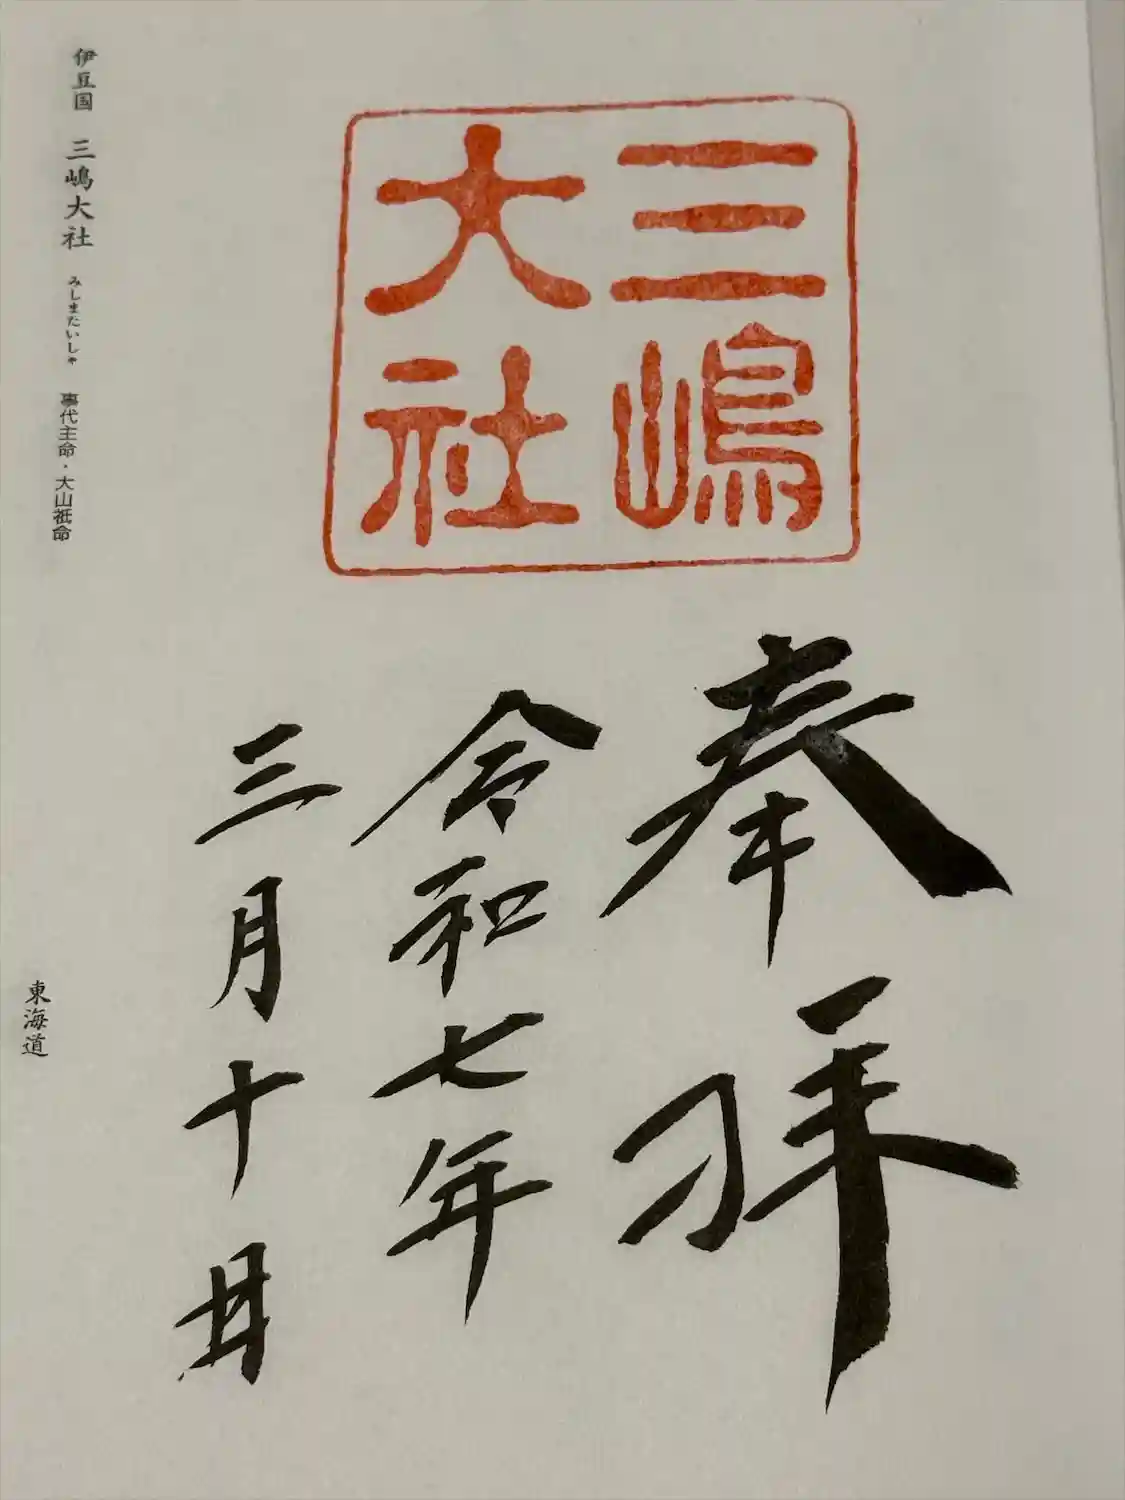 三嶋
大社
奉拝
令和七年
三月十日
伊豆国 三嶋大社 みしまたいしゃ 事代主命・大山祇命
東海道